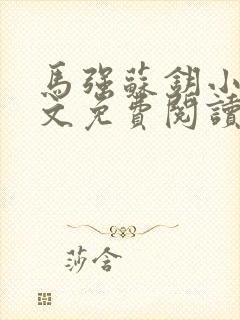 馬強蘇鈅小
文免費閱讀
莎含